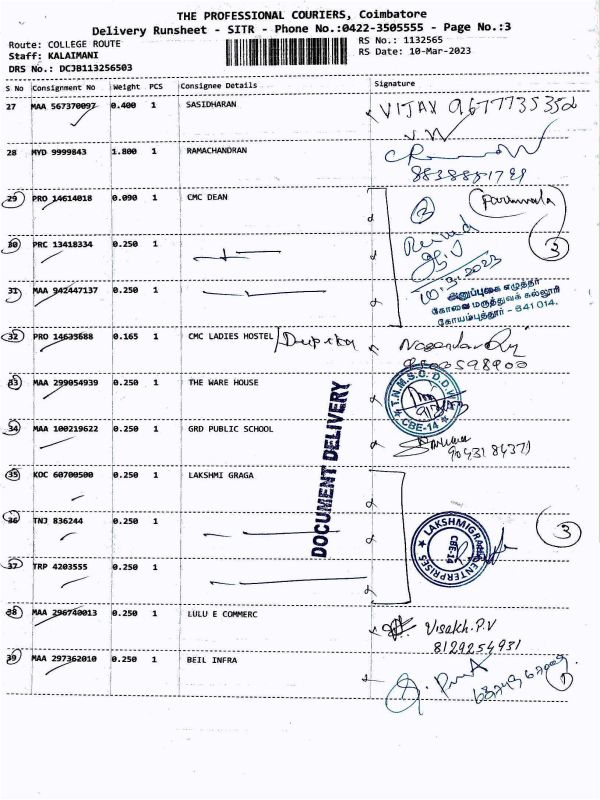 THE PROFESSIONAL COURIERS, Coimbatore
Delivery Runsheet - SITR - Phone No.:0422-3505555 - Page No.:3
Route: COLLEGE ROUTE
Staff: KALAIMANI
DRS No.: DCJB113256503
RS No.: 1132565
RS Date: 10-Mar-2023
S No Consignment No Weight PCS Consignee Details Signature
27 MAA 567370097 0.400 1 SASIDHARAN VIJAY 9677735352
28 MYD 9999843 1.800 1 RAMACHANDRAN
29 PRO 14614018 0.090 1 CMC DEAN
3
30 PRC 13418334 0.250 1
10.3.2023
31 MAA 942447137 0.250 1
அனுப்புகை எழுத்தர்
கோவை மருத்துவக் கல்லூரி
கோயம்புத்தூர் - 641 014.
32 PRO 14635688 0.165 1 CMC LADIES HOSTEL
33 MAA 299054939 0.250 1 THE WARE HOUSE
T.N.M.S.C.D.D.W
CBE-14
34 MAA 100219622 0.250 1 GRD PUBLIC SCHOOL
DOCUMENT DELIVERY
35 KOC 60700500 0.250 1 LAKSHMI GRAGA
36 TNJ 836244 0.250 1
LAKSHMIGRAHA ENTERPRISES
CBE-14
3
37 TRP 4203555 0.250 1
38 MAA 296740013 0.250 1 LULU E COMMERC Visakh.P.V
8129254931
39 MAA 297362010 0.250 1 BEIL INFRA
1